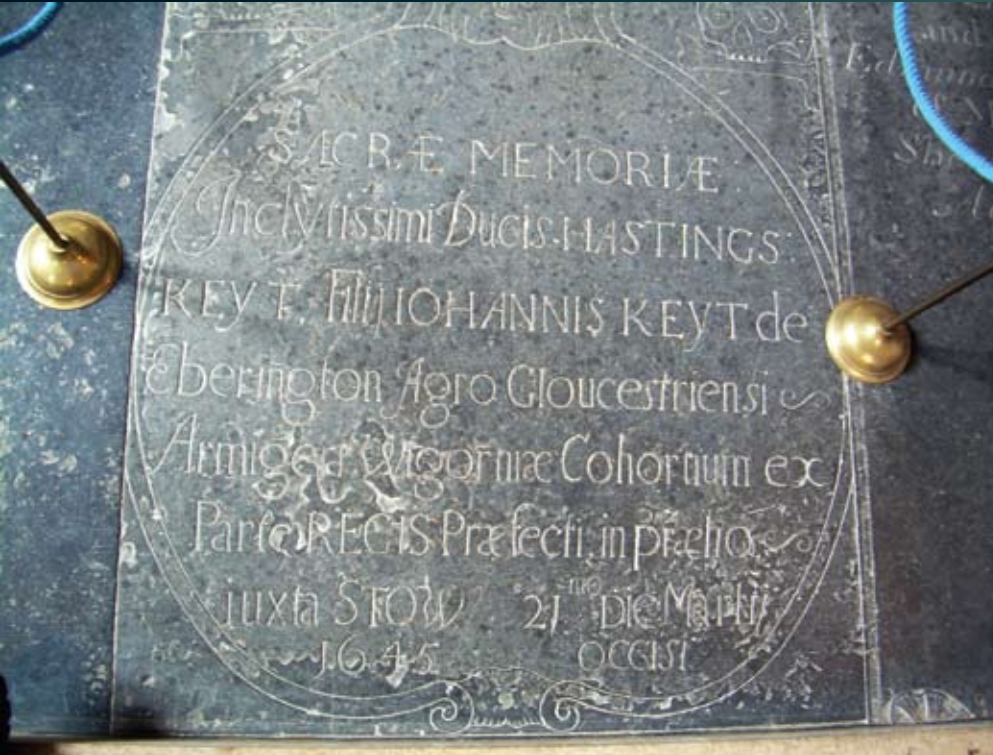 SACRÆ MEMORIÆ
Inclytissimi Ducis HASTINGS
KEYT, Filij IOHANNIS KEYT de
Eberington Agro Gloucestriensi
Armigeri Wigorniæ Cohortium ex
Parte REGIS Præfecti, in prælio
iuxta STOW 21mo Die Martij
1645 OCCISI
and